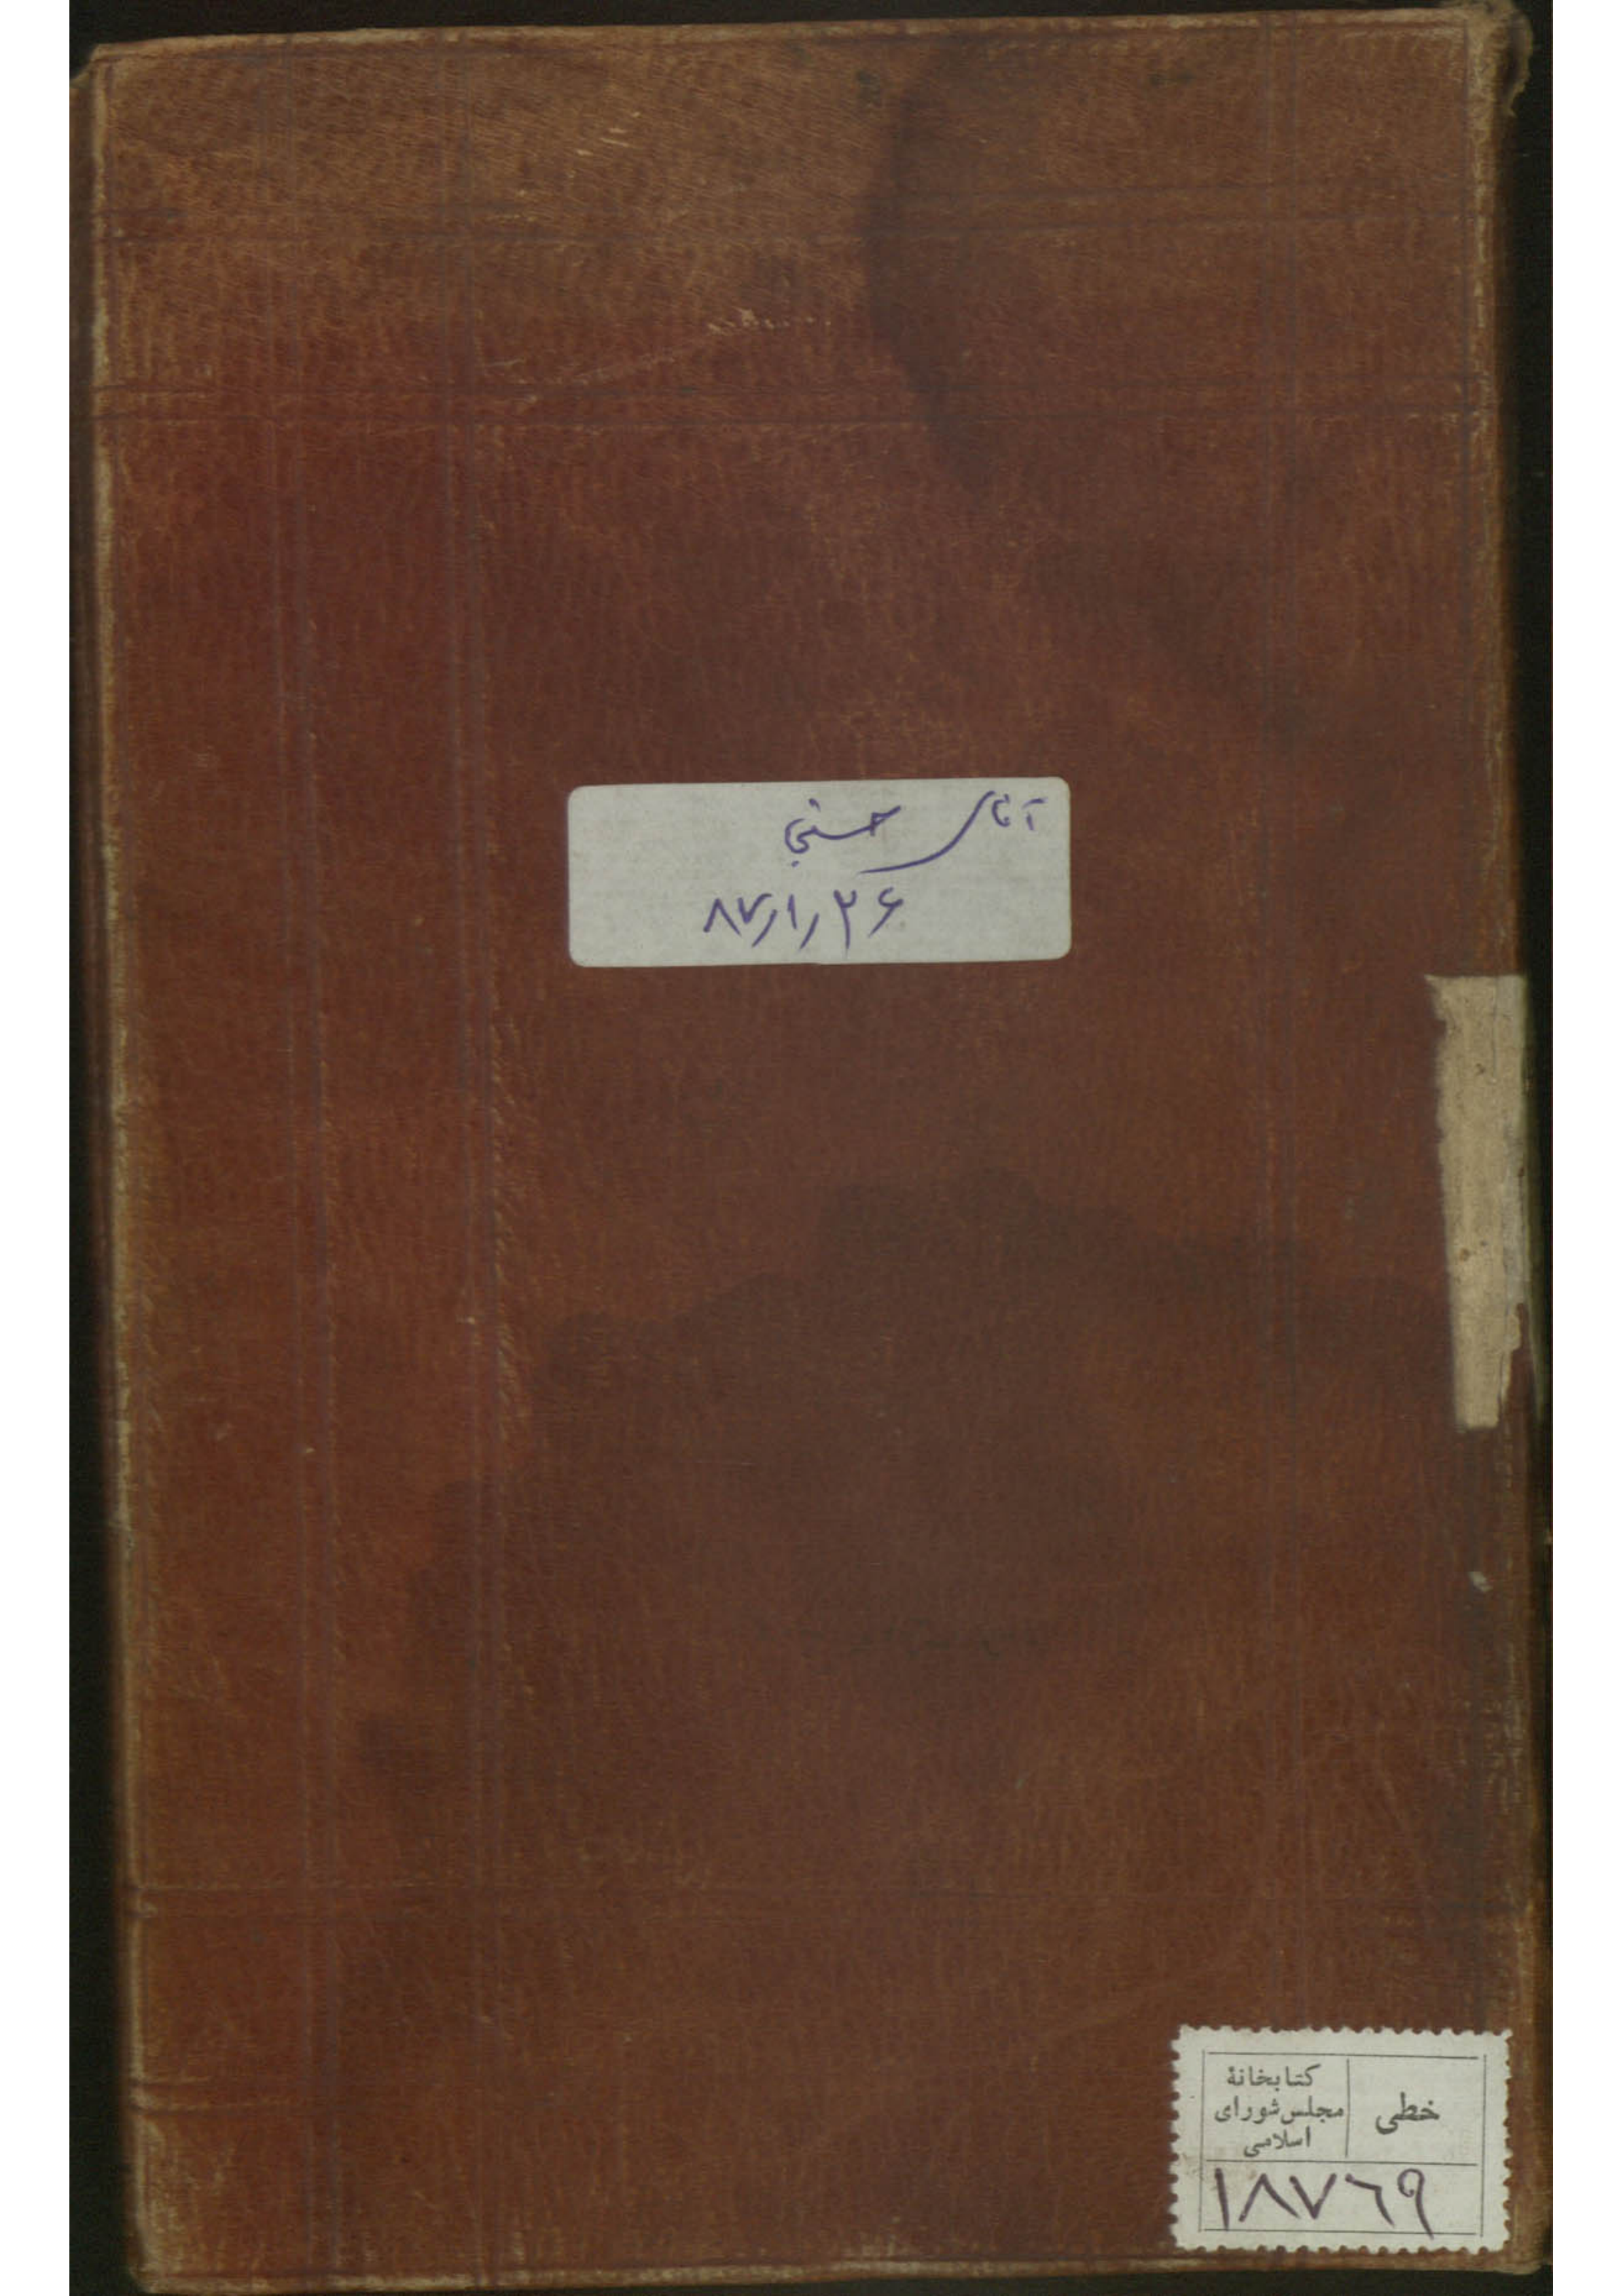 آقای حسنی
۸۷/۱/۲۶
خطی
کتابخانهٔ
مجلس شورای
اسلامی
۱۸۷٦۹